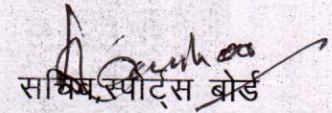 सचिव, स्पोर्ट्स बोर्ड